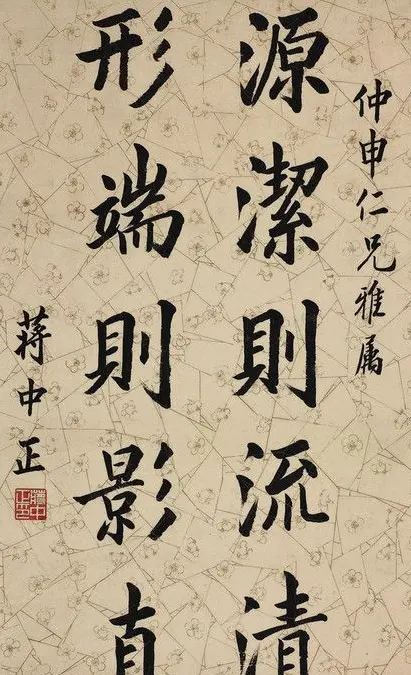 仲申仁兄雅属
源潔則流清
形端則影直
蔣中正